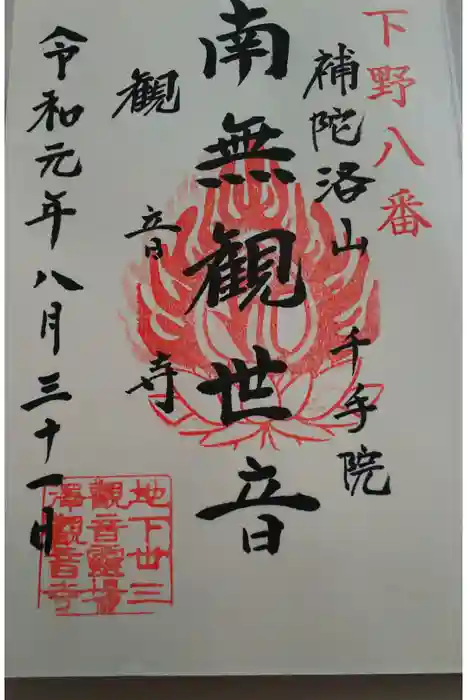 下野八番
補陀洛山 千手院
南無観世音
観音寺
令和元年八月三十一日
地下丗三
觀音靈場
澤觀音寺